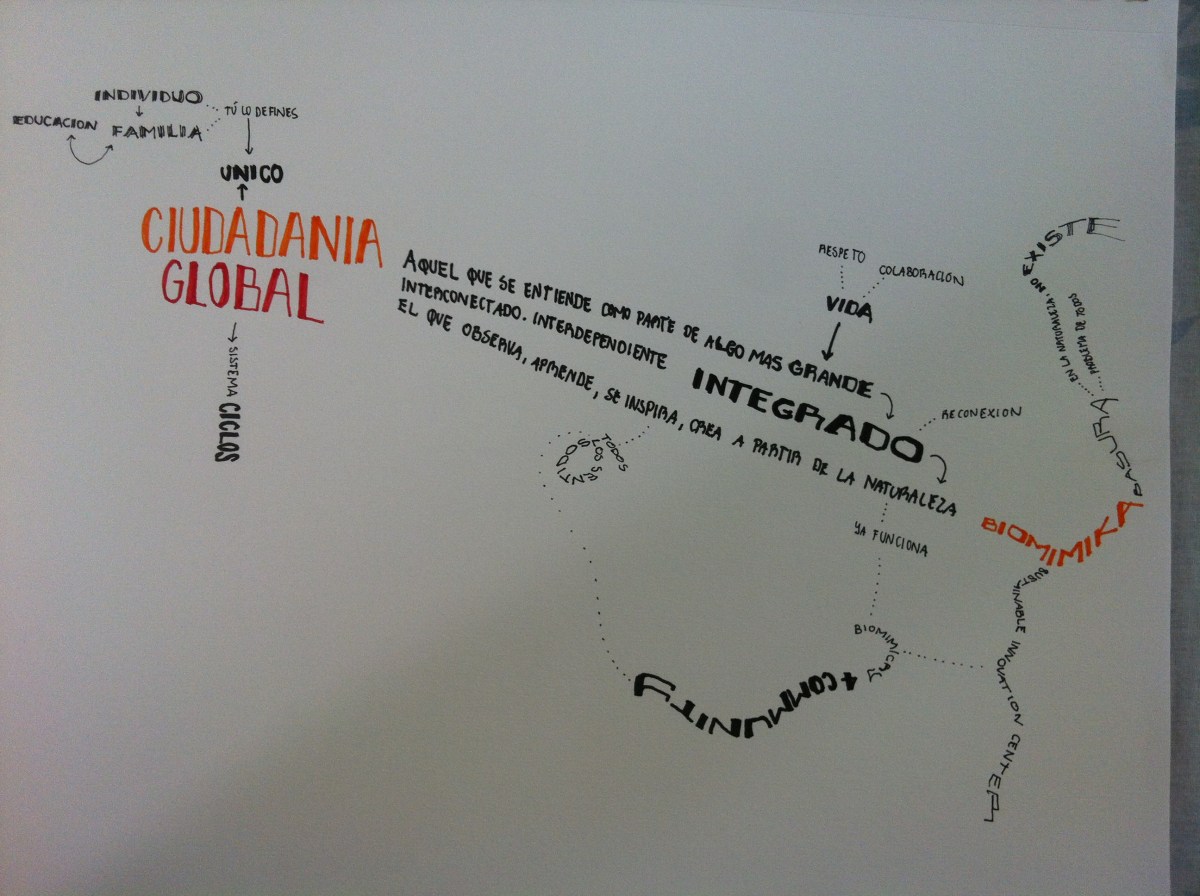 INDIVIDUO
EDUCACION
FAMILIA
TÚ LO DEFINES
UNICO
CIUDADANIA
GLOBAL
SISTEMA CICLOS
AQUEL QUE SE ENTIENDE COMO PARTE DE ALGO MAS GRANDE
INTERCONECTADO. INTERDEPENDIENTE INTEGRADO
EL QUE OBSERVA, APRENDE, SE INSPIRA, CREA A PARTIR DE LA NATURALEZA
RESPETO
COLABORACIÓN
VIDA
RECONEXION
TODOS
LOS SENTIDOS
YA FUNCIONA
BIOMIMIKA
BASURA
EN LA NATURALEZA, NO EXISTE
PROBLEMA DE TODOS
SUSTAINABLE INNOVATION CENTER
BIOMIMICRY
+ COMMUNITY